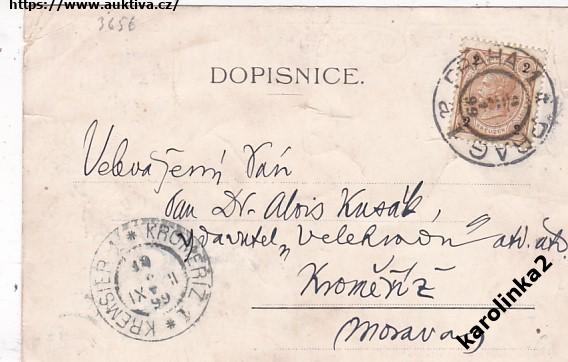 https://www.auktiva.cz/
3656
DOPISNICE.
PRAHA 1
PRAG 1
2 2
Velevážený Pán
Pan Dr. Alois Kusák,
vydavatel „Velehradu" atd. atd.
Kroměříž
Morava
KREMSIER * KROMĚŘÍŽ 1 *
4 XI
99
karolinka2